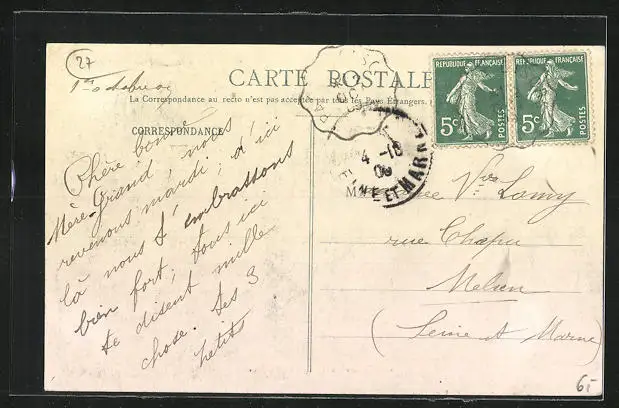 27
1er octobre 09
CARTE POSTALE
La Correspondance au recto n'est pas acceptée par tous les Pays Étrangers.
CORRESPONDANCE
RÉPUBLIQUE FRANÇAISE
5c
POSTES
RÉPUBLIQUE FRANÇAISE
5c
POSTES
4 -10
09
NE ET MARN
Chère bonne
Mère-Grand, nous
revenons mardi; d'ici
là nous t'embrassons
bien fort; tous ici
te disent mille
chose. Tes 3
petits
Vve Lamy
rue Chapu
Melun
(Seine et Marne)
6.-